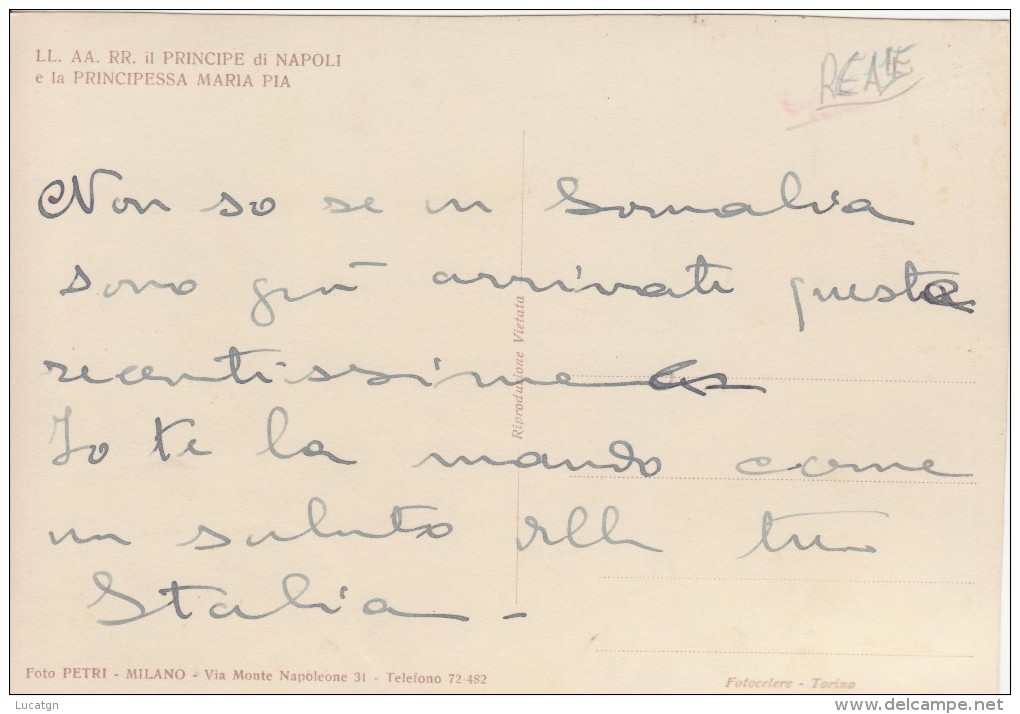 LL. AA. RR. il PRINCIPE di NAPOLI
e la PRINCIPESSA MARIA PIA
REALE
Non so se in Somalia
sono già arrivate queste
recentissime
Io te la mando come
un saluto della tua
Italia -
Riproduzione Vietata
Foto PETRI - MILANO - Via Monte Napoleone 31 - Telefono 72-482
Fotocelere - Torino
Lucatgn
delcampe.net